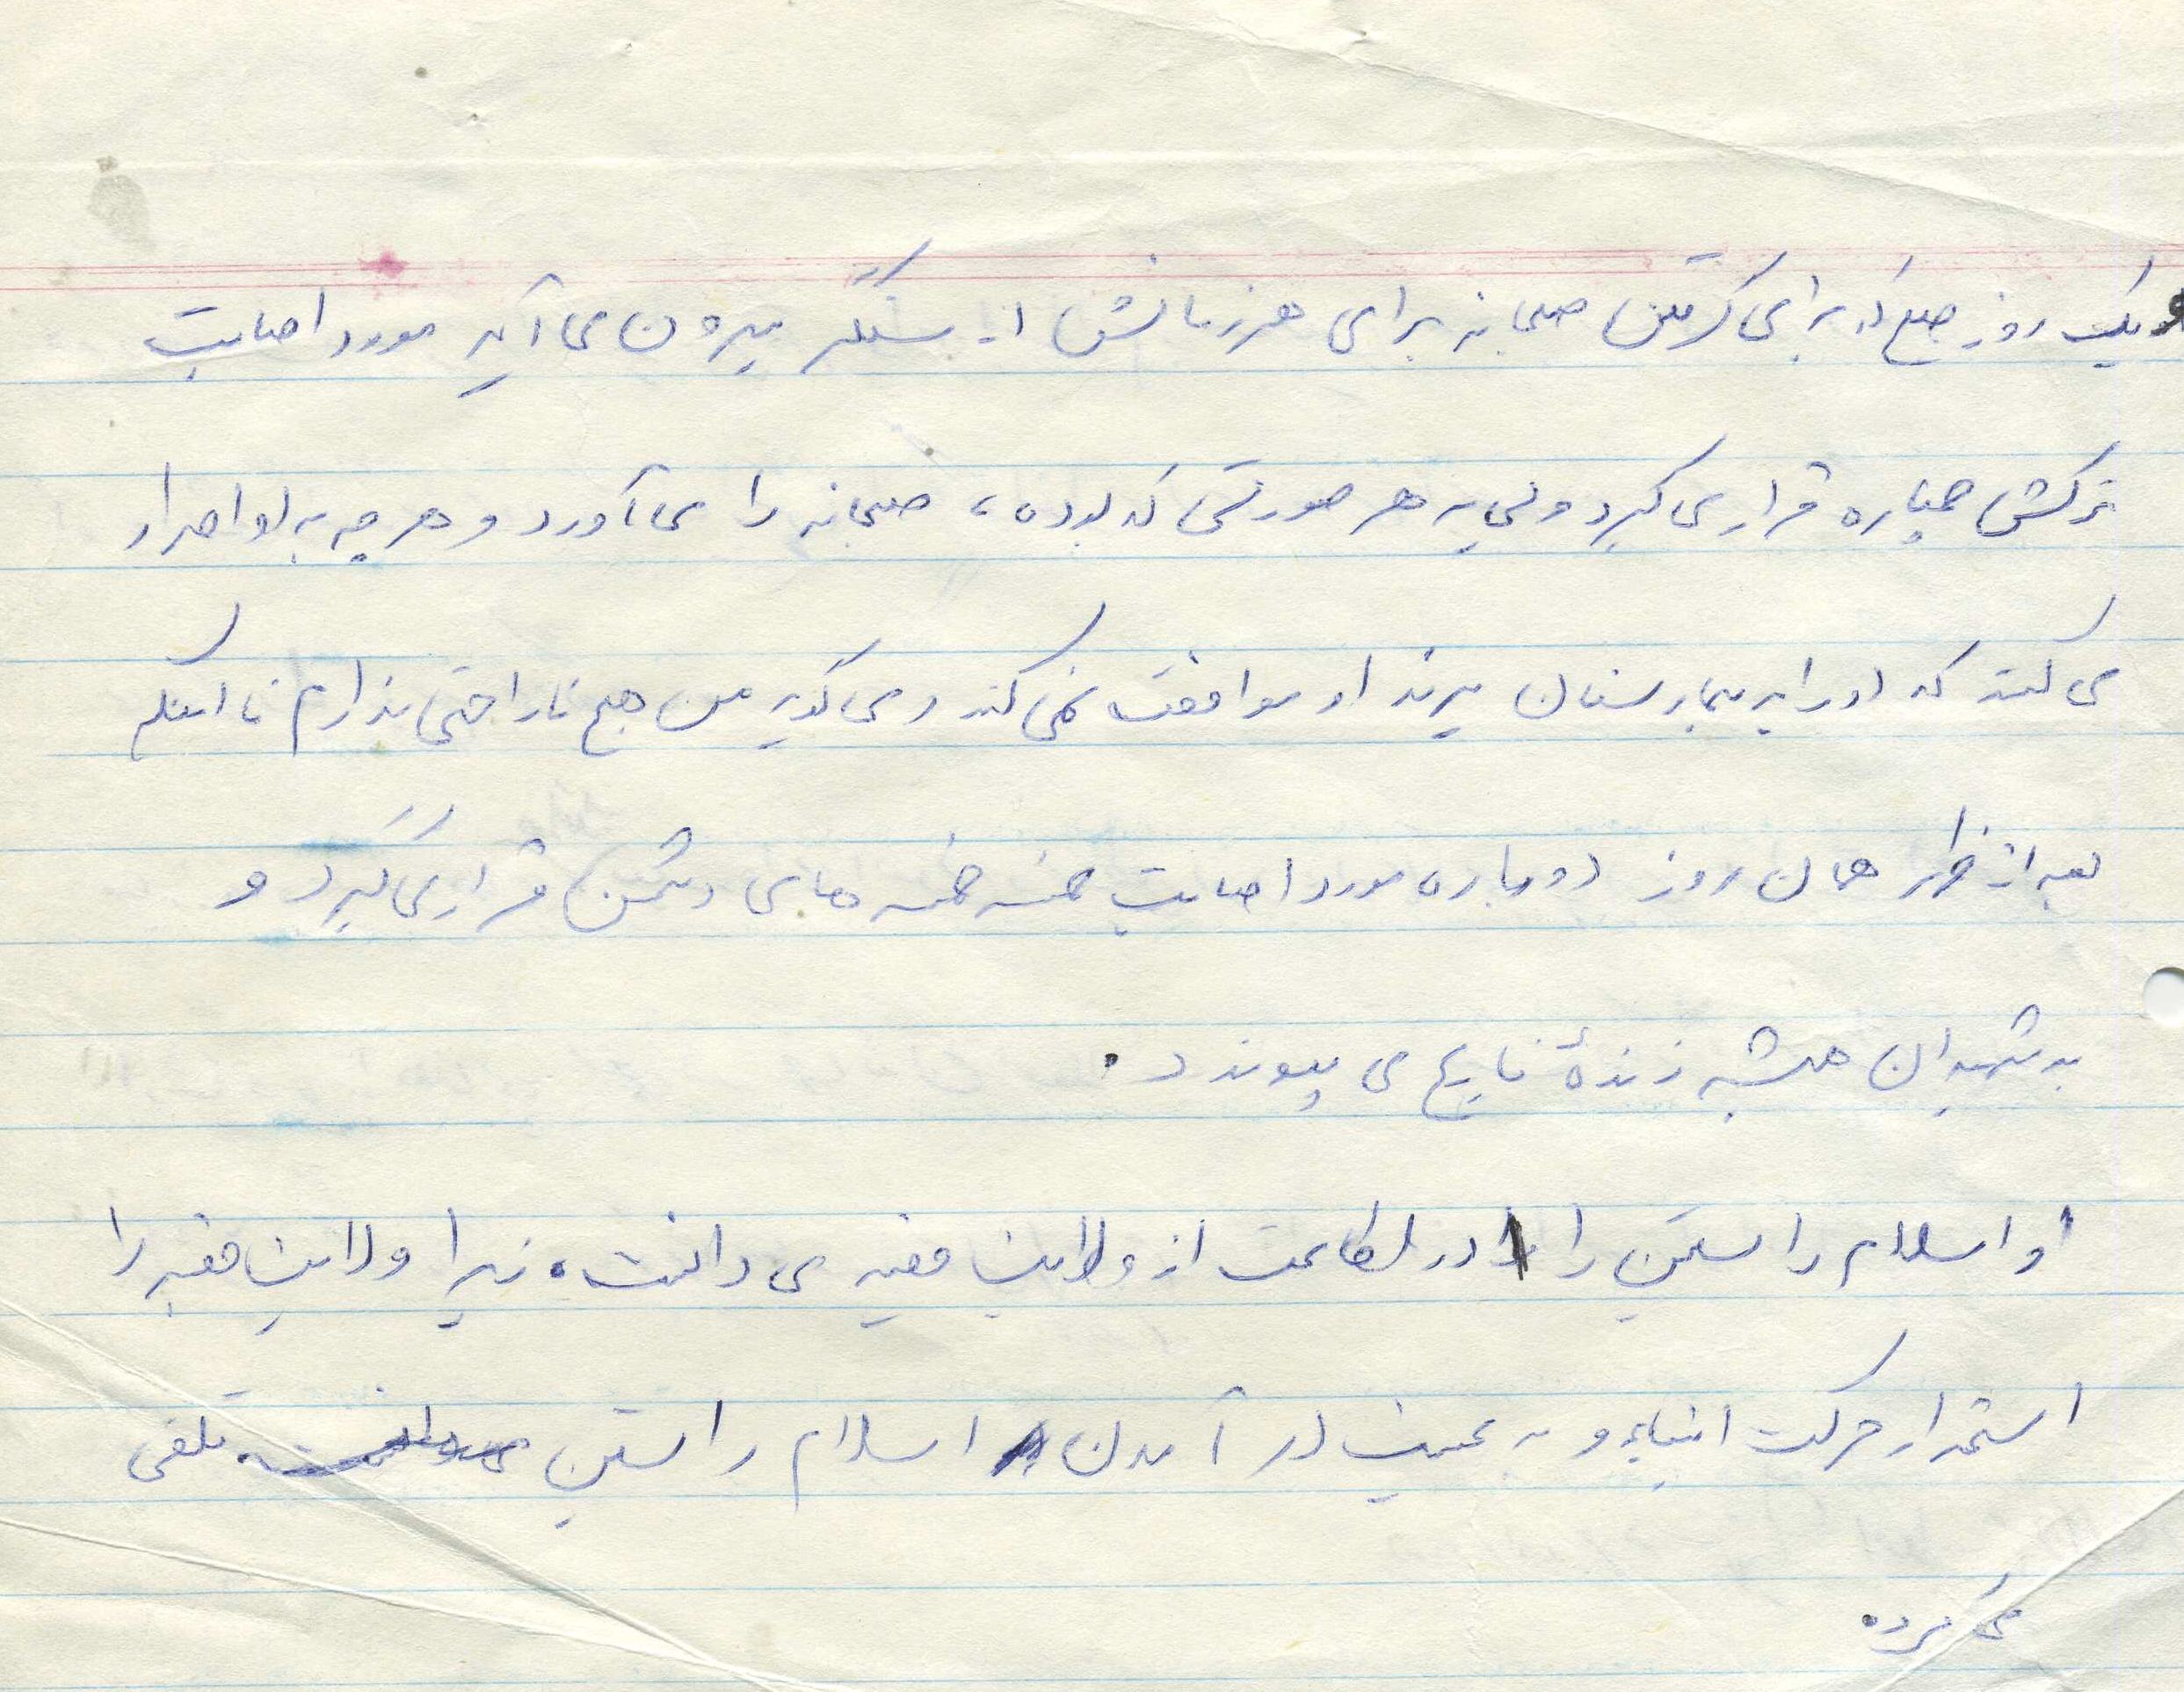 یک روز صبح که برای گرفتن صبحانه برای همرزمانش از سنگر بیرون می آید مورد اصابت
ترکش خمپاره قرار می گیرد ولی به هر صورتی که بوده، صبحانه را می آورد و هر چه به او اصرار
می کنند که او را به بیمارستان ببرند او موافقت نمی کند و می گوید من هیچ ناراحتی ندارم تا اینکه
بعد از ظهر همان روز دوباره مورد اصابت خمسه خمسه های دشمن قرار می گیرد و
به شهیدان همیشه زندهٔ تاریخ می پیوندد.
او اسلام راستین را در اطاعت از ولایت فقیه می دانست، زیرا ولایت فقیه را
استمرار حرکت انبیاء و به عینیت در آمدن اسلام راستین تلقی
می کرد.